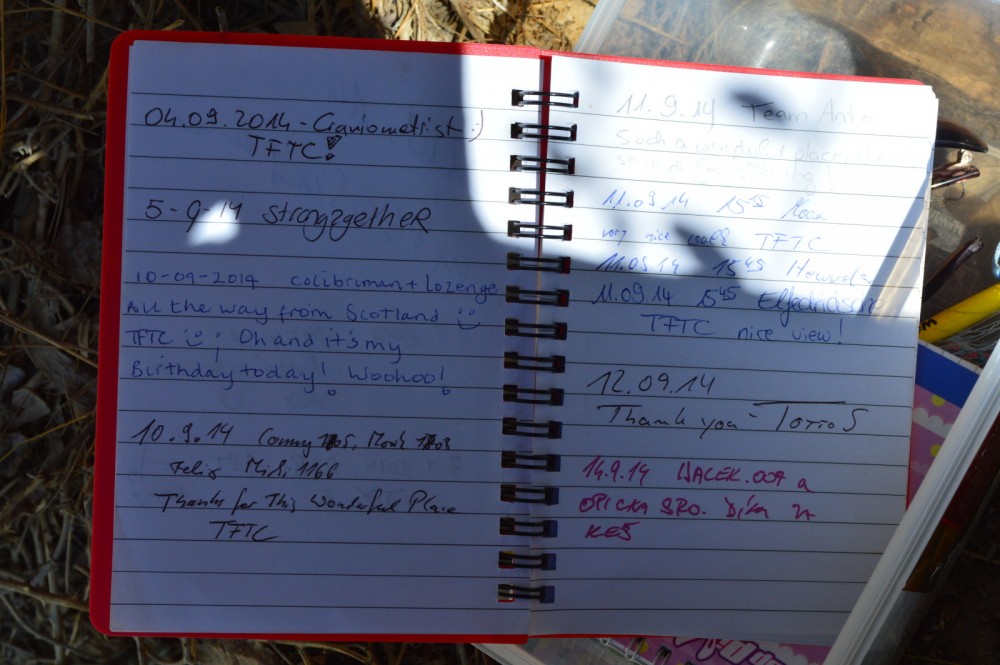 04.09.2014 - Craniometrist :)
TFTC!
5-9-14 strongzgetheR
10-09-2014 colibriman + Lozenge
All the way from Scotland
TFTC ; Oh and it's my
Birthday today! Woohoo!
10.9.14 Conny
Felix
Thanks for This Wonderful Place
TFTC
11.9.14 Team
Such a wonderful place,
11.09.14 15
very nice TFTC
11.09.14 15 45
11.09.14 15 45
TFTC nice view!
12.09.14
Thank you - TorroS
14.9.14 WACEK.007 a
OPICKA SRO. Díky za
KEŠ